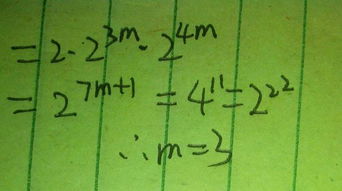 = 2·2^{3m}·2^{4m}
= 2^{7m+1} = 4^{11} = 2^{22}
∴ m = 3